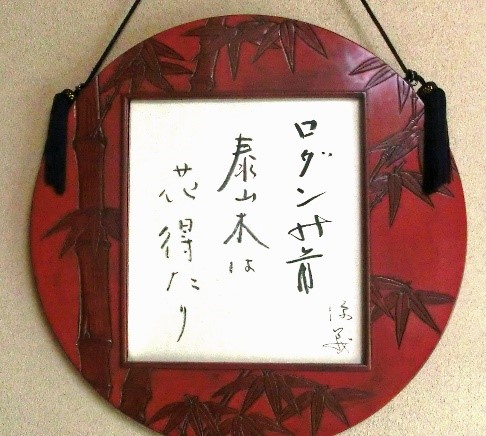 ロダンの首
泰山木は
花得たり
源義